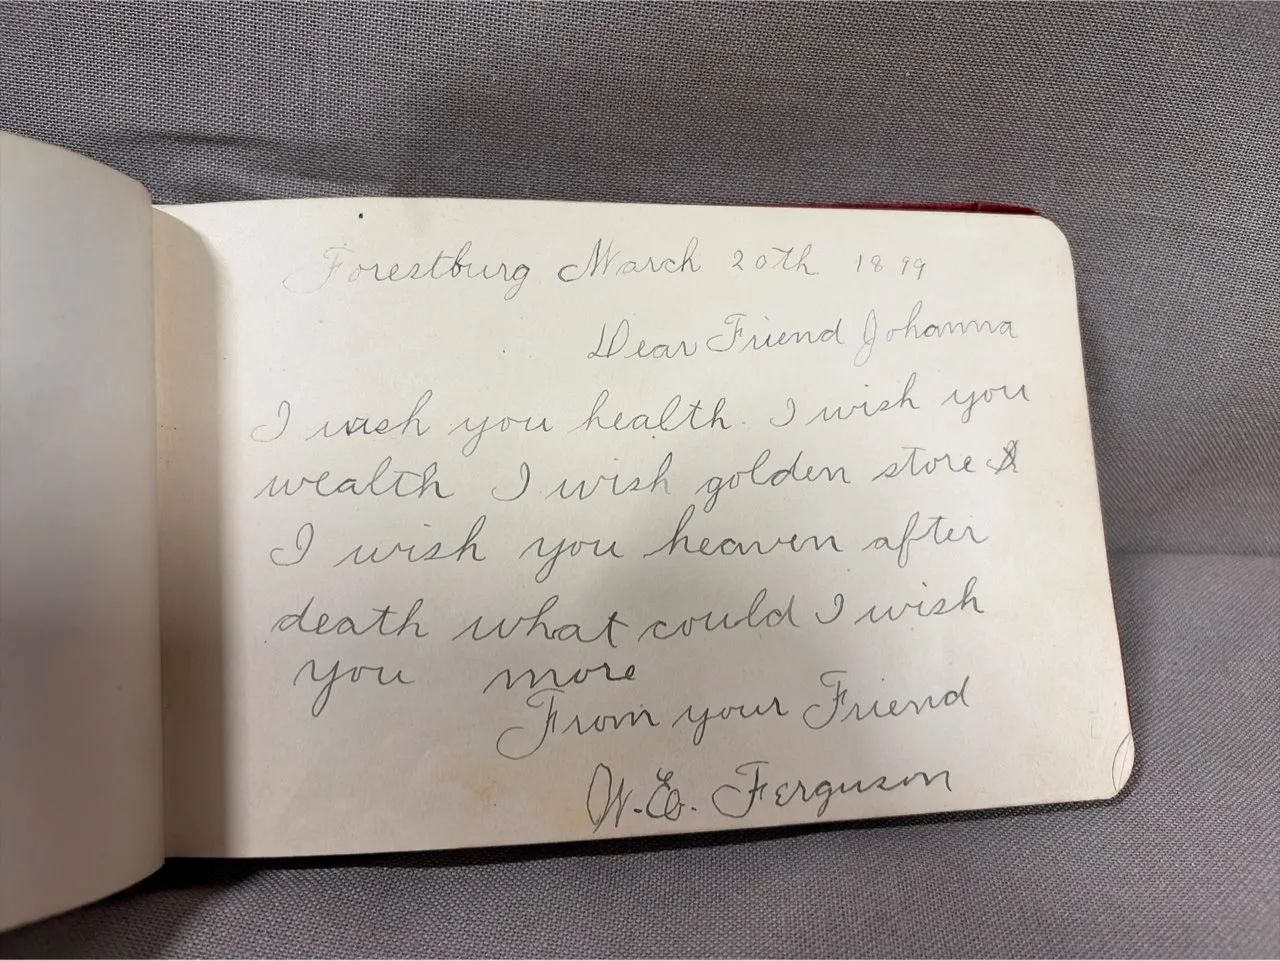 Forestburg March 20th 1899
Dear Friend Johanna
I wish you health. I wish you
wealth I wish golden store
I wish you heaven after
death what could I wish
you more
From your Friend
W. E. Ferguson